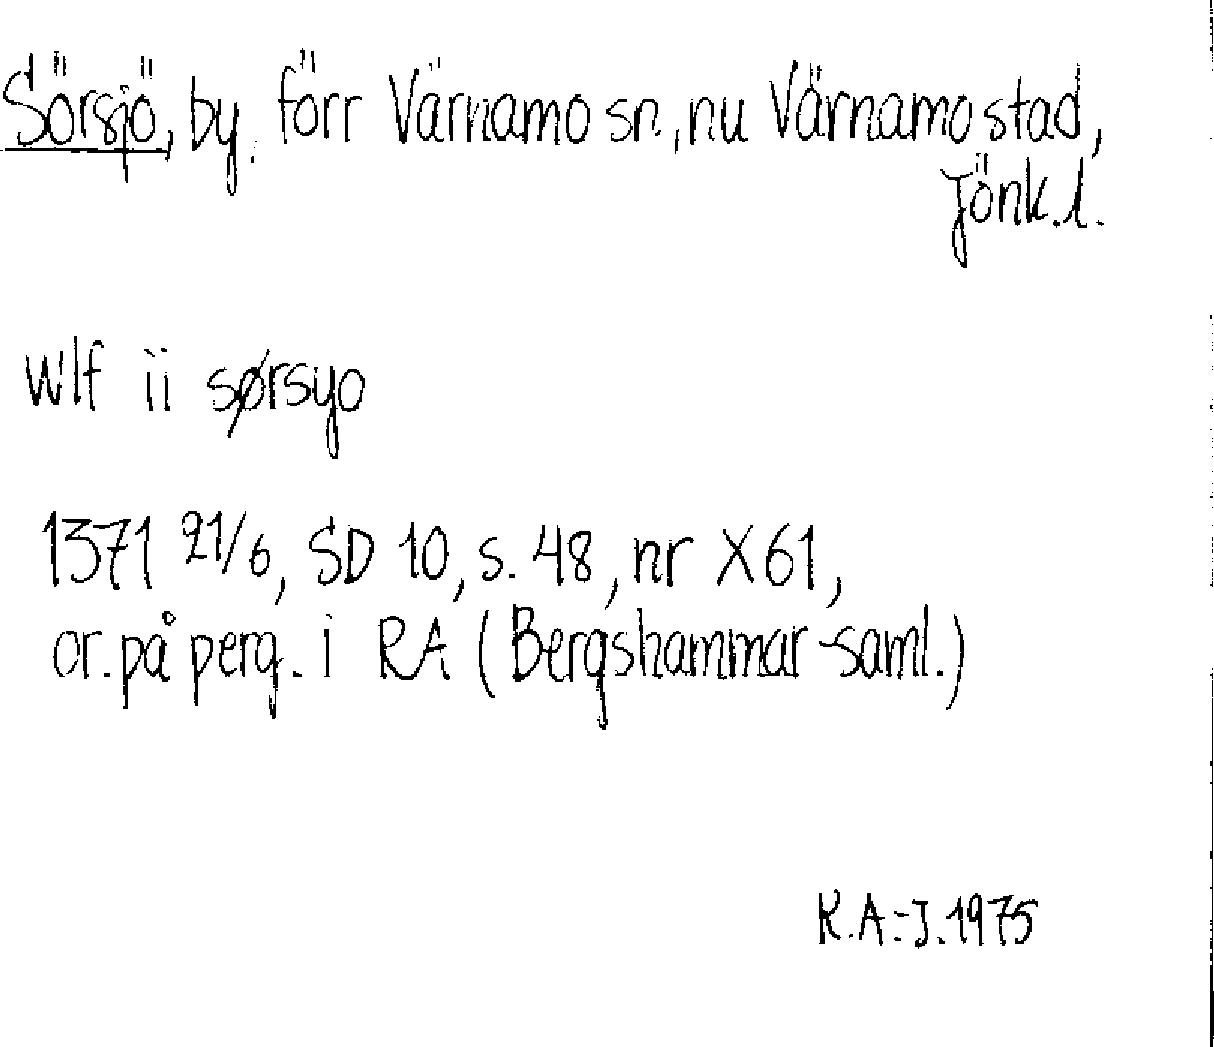 Sörsjö, by. förr Värnamo sn, nu Värnamo stad,
Jönk.l.
wlf ii sørsyo
1371 21/6, SD 10, s. 48, nr X 61,
or. på perg. i RA (Bergshammar-saml.)
K.A.-J. 1975